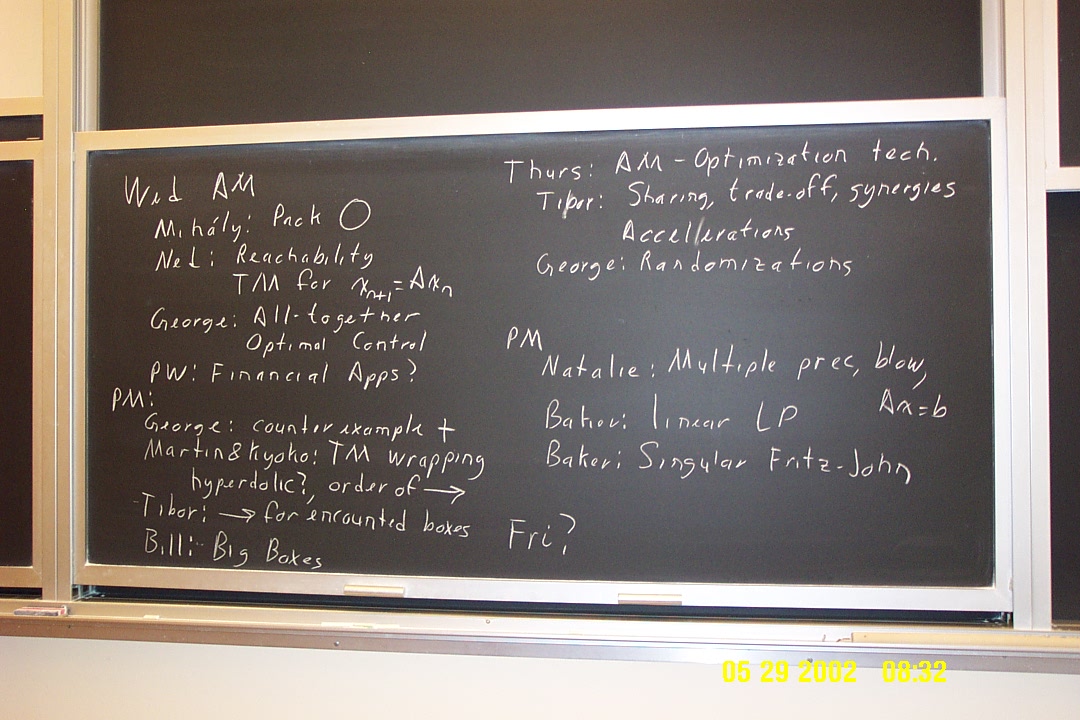 Wed AM
Mihály: Pack ○
Ned: Reachability
TM for xₙ₊₁=Axₙ
George: All-together
Optimal Control
PW: Financial Apps?
PM:
George: counter example +
Martin & Kyoko: TM wrapping
hyperdolic?, order of →
Tibor: → for encounted boxes
Bill: Big Boxes
Thurs: AM - Optimization tech.
Tibor: Sharing, trade-off, synergies
Accellerations
George: Randomizations
PM
Natalie: Multiple prec, blow,
Ax=b
Baker: linear LP
Baker: Singular Fritz-John
Fri?
05 29 2002 08:32